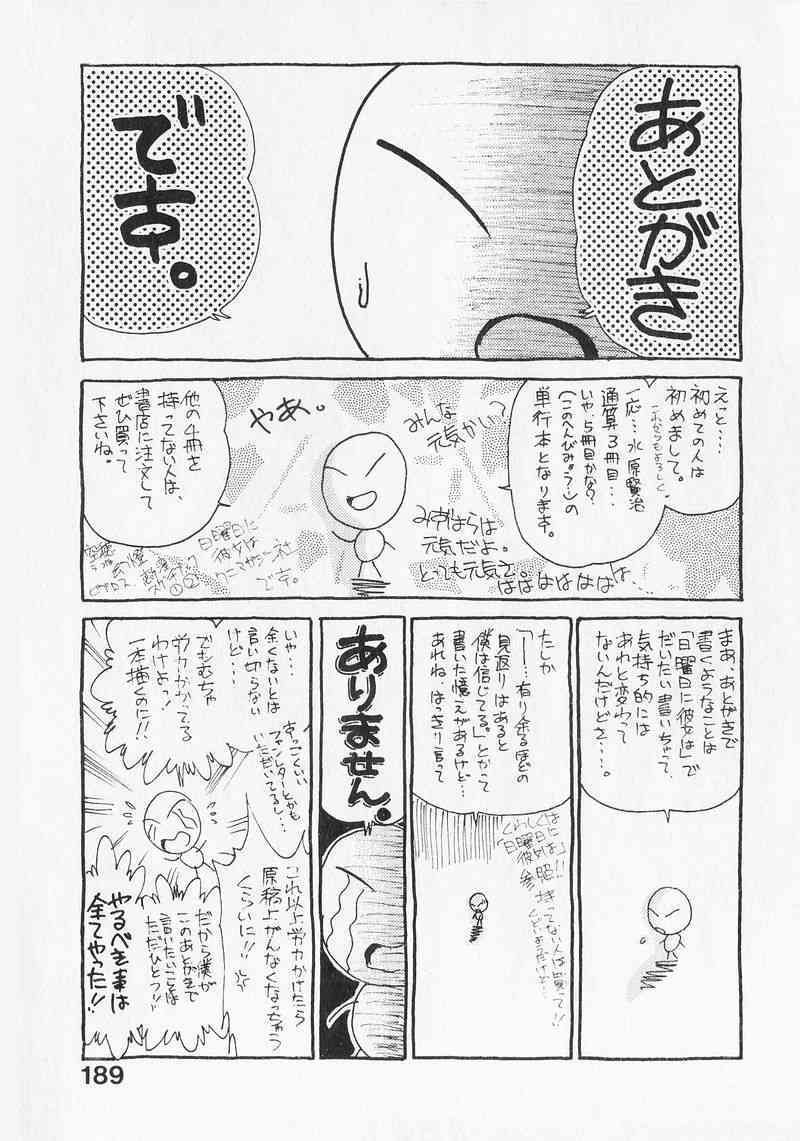 あとがき
です。
えっと…
初めての人は
初めまして。
これからもよろしく
一応…水原賢治
通算３冊目…
いや、５冊目かな？
（このへんびみょ〜）の
単行本となります。
みんな
元気かい？
やあ。
みずはらは
元気だよ。
とっても元気さ。
はははははは…
他の４冊を
持ってない人は、
書店に注文して
ぜひ買って
下さいね。
日曜日に
彼女は
ワニマガジン社
です。
まあ、あとがきで
書くようなことは
「日曜日に彼女は」で
だいたい書いちゃって、
気持ち的には
あれと変わって
ないんだけどさ…。
たしか
「１…有り余るほどの
見返りはあると
僕は信じてる。」とかって
書いた憶えがあるけど…
あれね、はっきり言って
くわしくは
「日曜日に
彼女は」
参照!!
持ってない人は買って!!
ありません。
いや…
全くないとは
言い切らない
けど…
すっごくいい
ファンレターとかも
いただいてるし…
でもむちゃ
労力かかってる
わけよっ！
一本描くのに!!
これ以上労力かけたら
原稿上がんなくなっちゃう
くらいに!!
だから僕が
このあとがきで
言いたいことは
ただひとつ!!
やるべき事は
全てやった!!
189